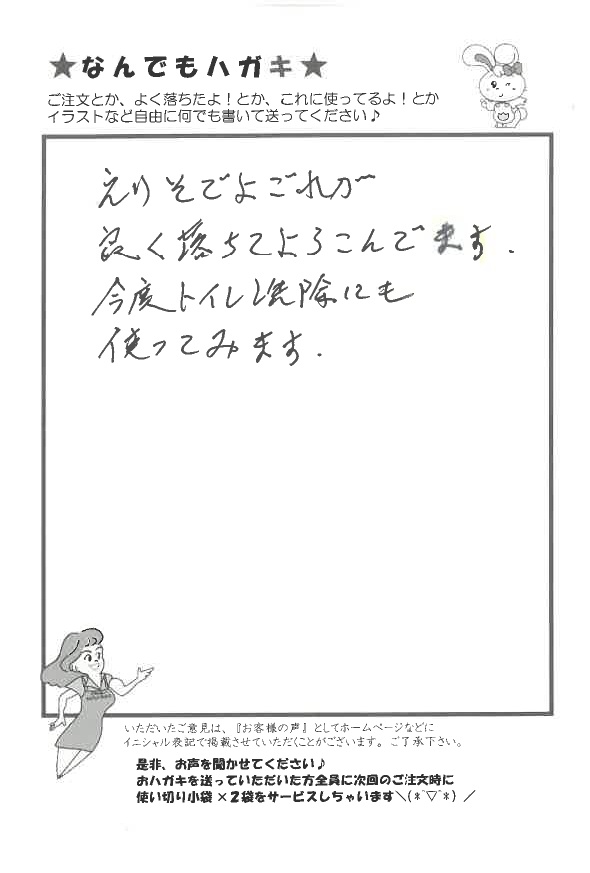 ★なんでもハガキ★
ご注文とか、よく落ちたよ!とか、これに使ってるよ!とか
イラストなど自由に何でも書いて送ってください♪
えりそでよごれが
良く落ちてよろこんでます.
今度トイレ洗除にも
使ってみます.
いただいたご意見は、『お客様の声』としてホームページなどに
イニシャル表記で掲載させていただくことがございます。ご了承下さい。
是非、お声を聞かせてください♪
おハガキを送っていただいた方全員に次回のご注文時に
使い切り小袋×2袋をサービスしちゃいます＼(*^▽^*)／